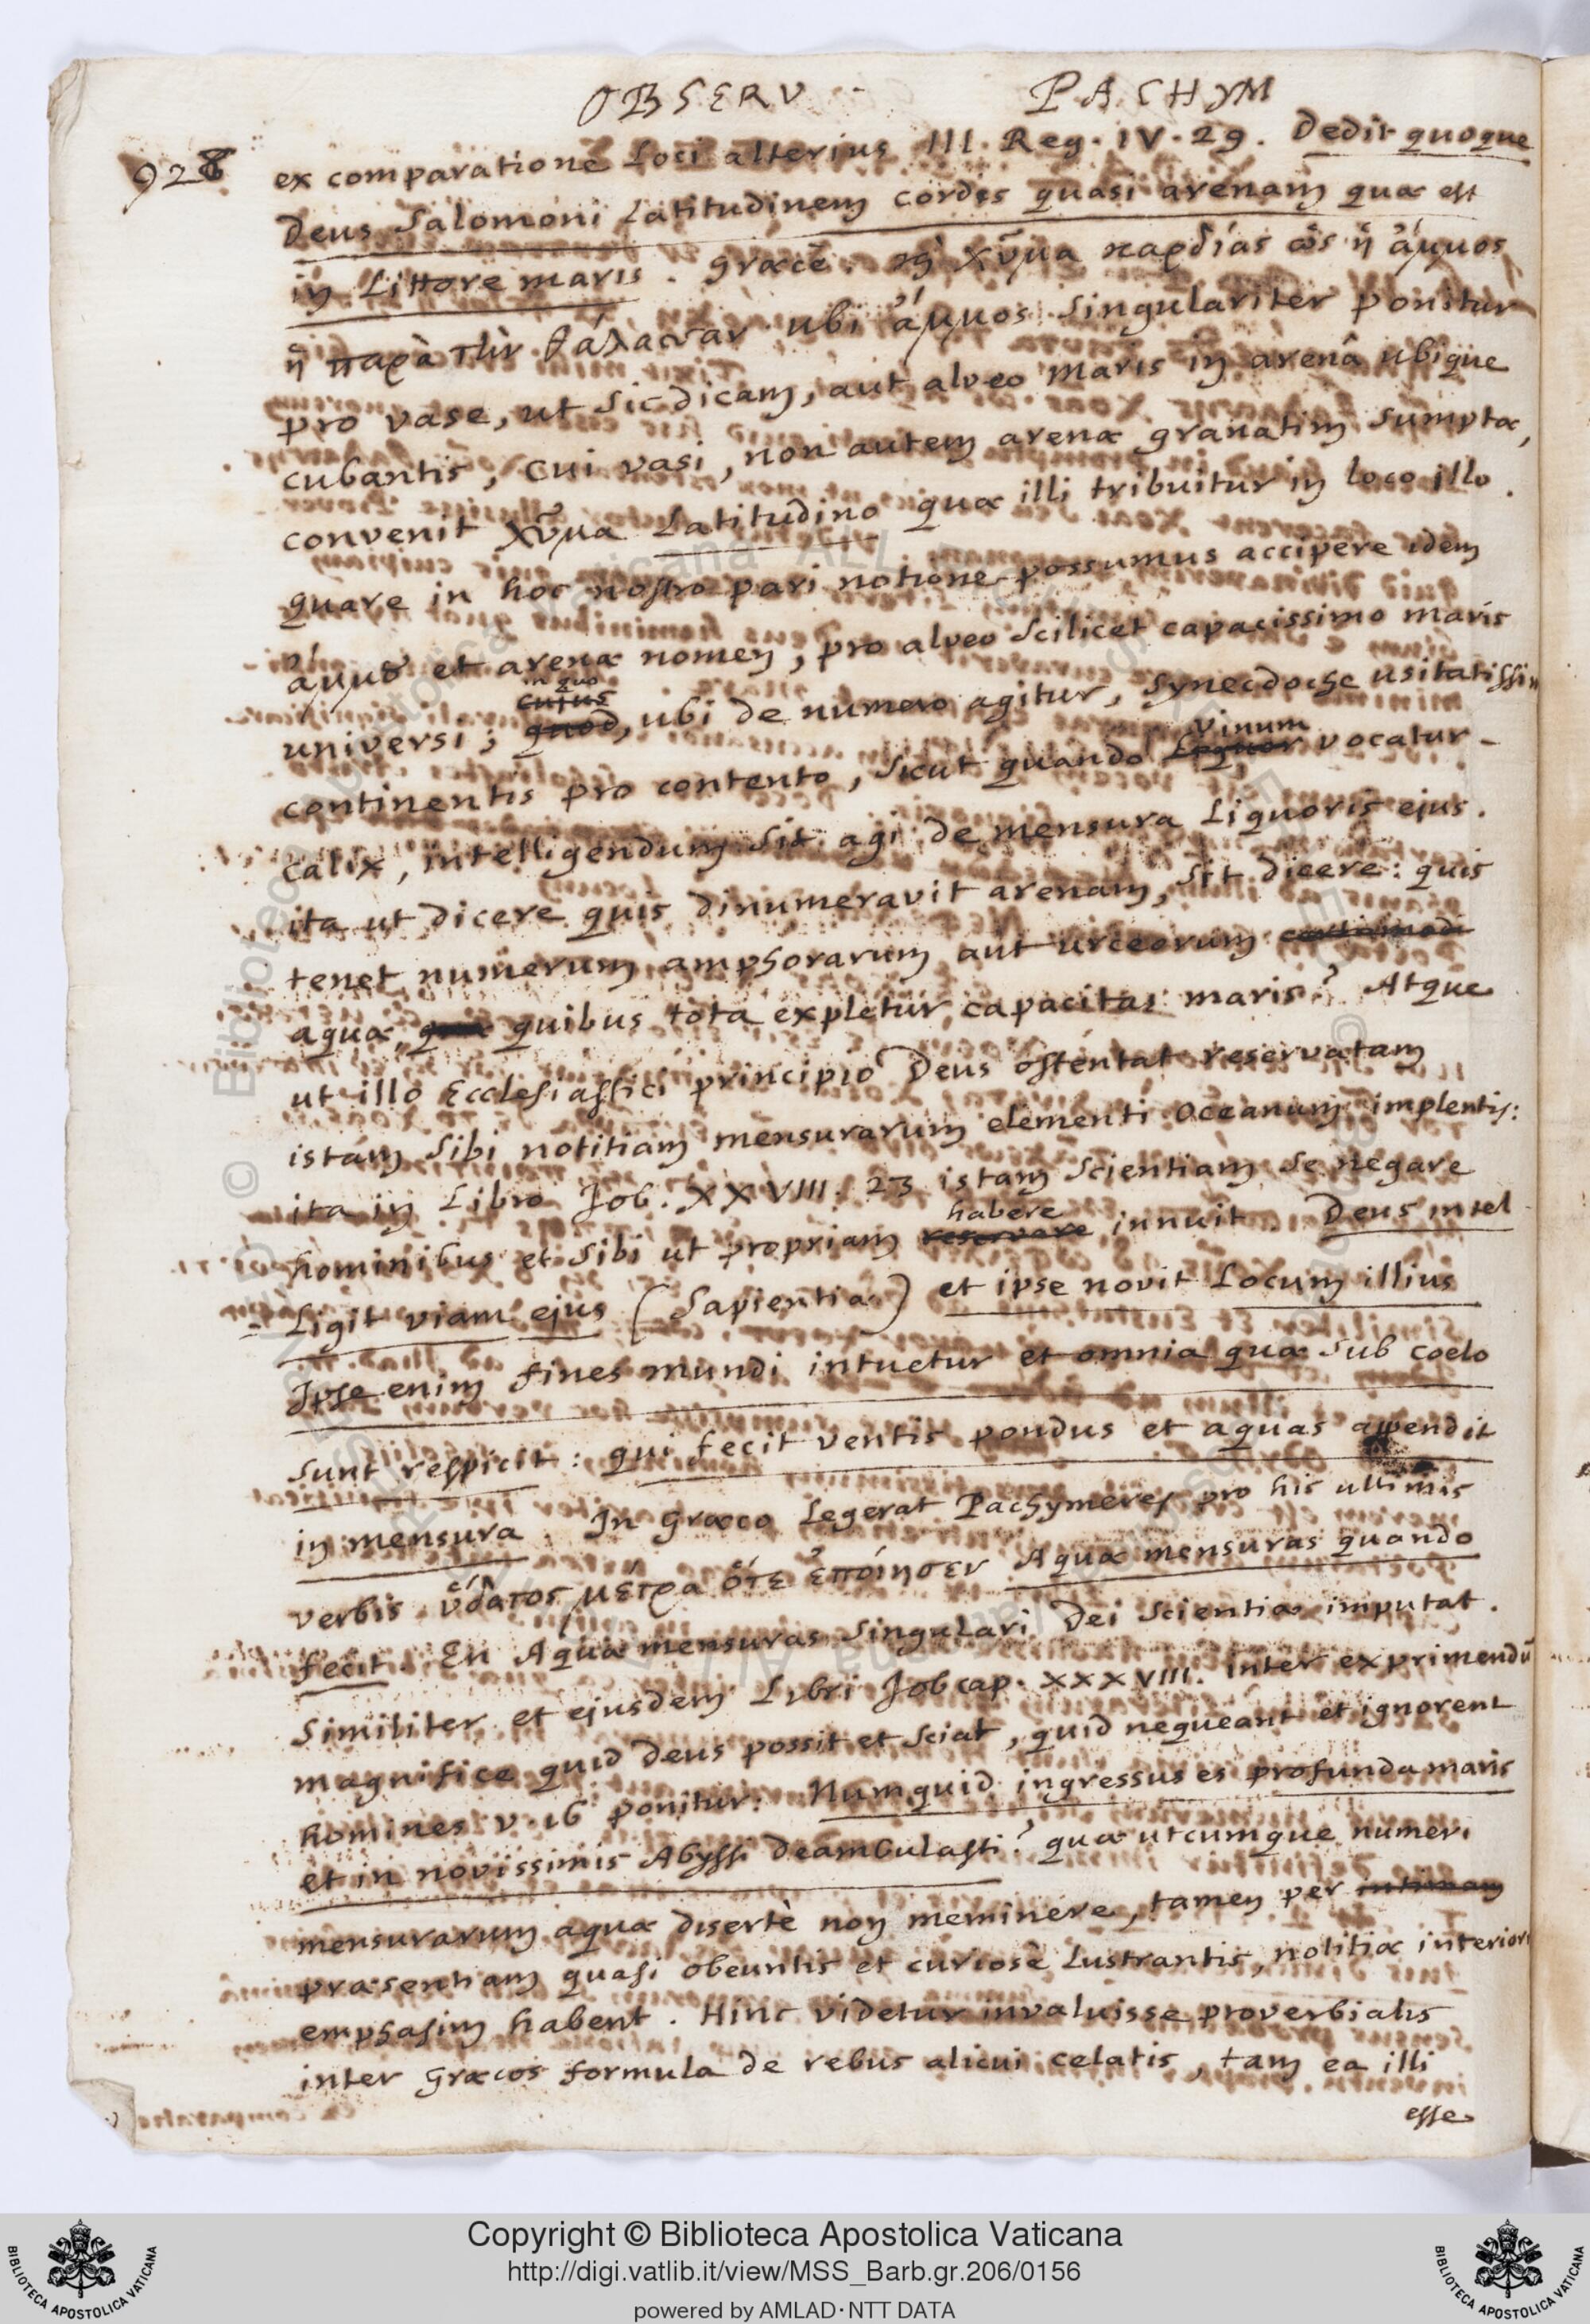 OBSERV. PACHYM
928
ex comparatione loci alterius III. Reg. IV. 29. Dedit quoque
Deus Salomoni latitudinem cordis quasi arenam quæ est
in littore maris. græcè. καὶ χῦμα καρδίας ὡς ἡ ἄμμος
ἡ παρὰ τὴν θάλασσαν ubi ἄμμος singulariter ponitur
pro vase, ut sic dicam, aut alveo maris in arenâ ubique
cubantis, cui vasi, non autem arenæ granatim sumptæ,
convenit χῦμα latitudino quæ illi tribuitur in loco illo.
quare in hoc nostro pari notione possumus accipere idem
ἄμμου et arenæ nomen, pro alveo scilicet capacissimo maris
in quo
cujus
universi; quod, ubi de numero agitur, synecdoche usitatissim
vinum
continentis pro contento, sicut quando liquor vocatur
calix, intelligendum sit agi de mensura liquoris ejus.
ita ut dicere quis dinumeravit arenam, sit dicere: quis
tenet numerum amphorarum aut urceorum
aquæ, quibus tota expletur capacitas maris? Atque
ut illo Ecclesiastici principio Deus ostentat reservatam
istam sibi notitiam mensurarum elementi oceanum implentis:
ita in Libro Job. XXVIII. 23 istam scientiam se negare
habere
hominibus et sibi ut propriam reservare innuit. Deus intel
ligit viam ejus (Sapientiæ) et ipse novit locum illius
Ipse enim fines mundi intuetur et omnia quæ sub coelo
sunt respicit: qui fecit ventis pondus et aquas appendit
in mensura. In græco legerat Pachymeres pro his ultimis
verbis ὕδατος μέτρα ὅτε ἐποίησεν Aquæ mensuras quando
fecit. En Aquæ mensuras singulari Dei scientiæ imputat.
Similiter et ejusdem Libri Job cap. XXXVIII. inter exprimendū
magnifice quid Deus possit et sciat, quid nequeant et ignorent
homines v. 16 ponitur: Numquid ingressus es profunda maris
et in novissimis Abyssi deambulasti? quæ utcumque numeri
mensurarum aquæ disertè non meminere, tamen per intimam
præsentiam quasi obeuntis et curiosè lustrantis, notitiæ interiori
emphasim habent. Hinc videtur invaluisse proverbialis
inter græcos formula de rebus alicui celatis, tam ea illi
esse
Copyright © Biblioteca Apostolica Vaticana
http://digi.vatlib.it/view/MSS_Barb.gr.206/0156
powered by AMLAD·NTT DATA
BIBLIOTECA APOSTOLICA VATICANA
BIBLIOTECA APOSTOLICA VATICANA